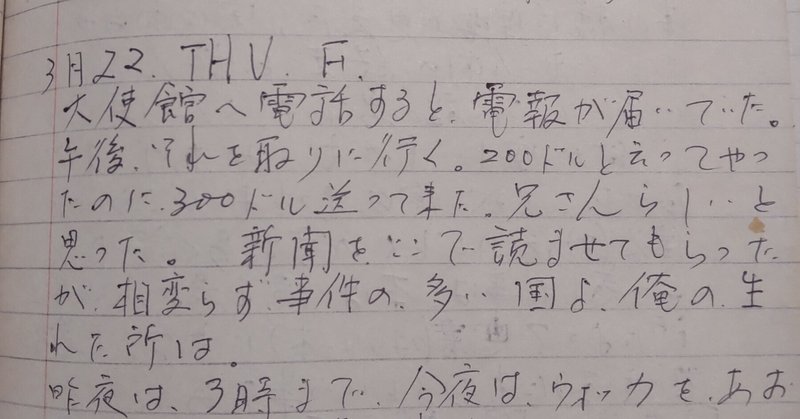 3月22. THU. F.
大使館へ電話すると、電報が届いていた。
午後、それを取りに行く。200ドルと云ってやっ
たのに、300ドル送って来た。兄さんらしいと
思った。 新聞をここで読ませてもらった
が、相変らず、事件の、多い国よ、俺の、生
れた所は。
昨夜は、3時まで、今夜は、ウォッカを、あお